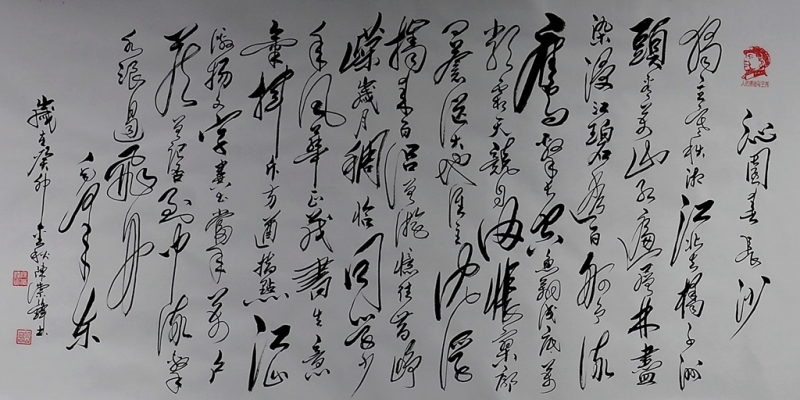 沁園春長沙
獨立寒秋湘江北去橘子洲
頭看萬山紅遍層林盡
染漫江碧透百舸爭流
鷹擊長空魚翔淺底萬
類霜天競自由悵寥廓
問蒼茫大地誰主沉浮
攜來百侶曾遊憶往昔崢
嶸歲月稠恰同學少
年風華正茂書生意
氣揮斥方遒指點江山
激揚文字糞土當年萬戶
侯曾記否到中流擊
水浪遏飛舟
毛澤東
歲在癸卯秋書